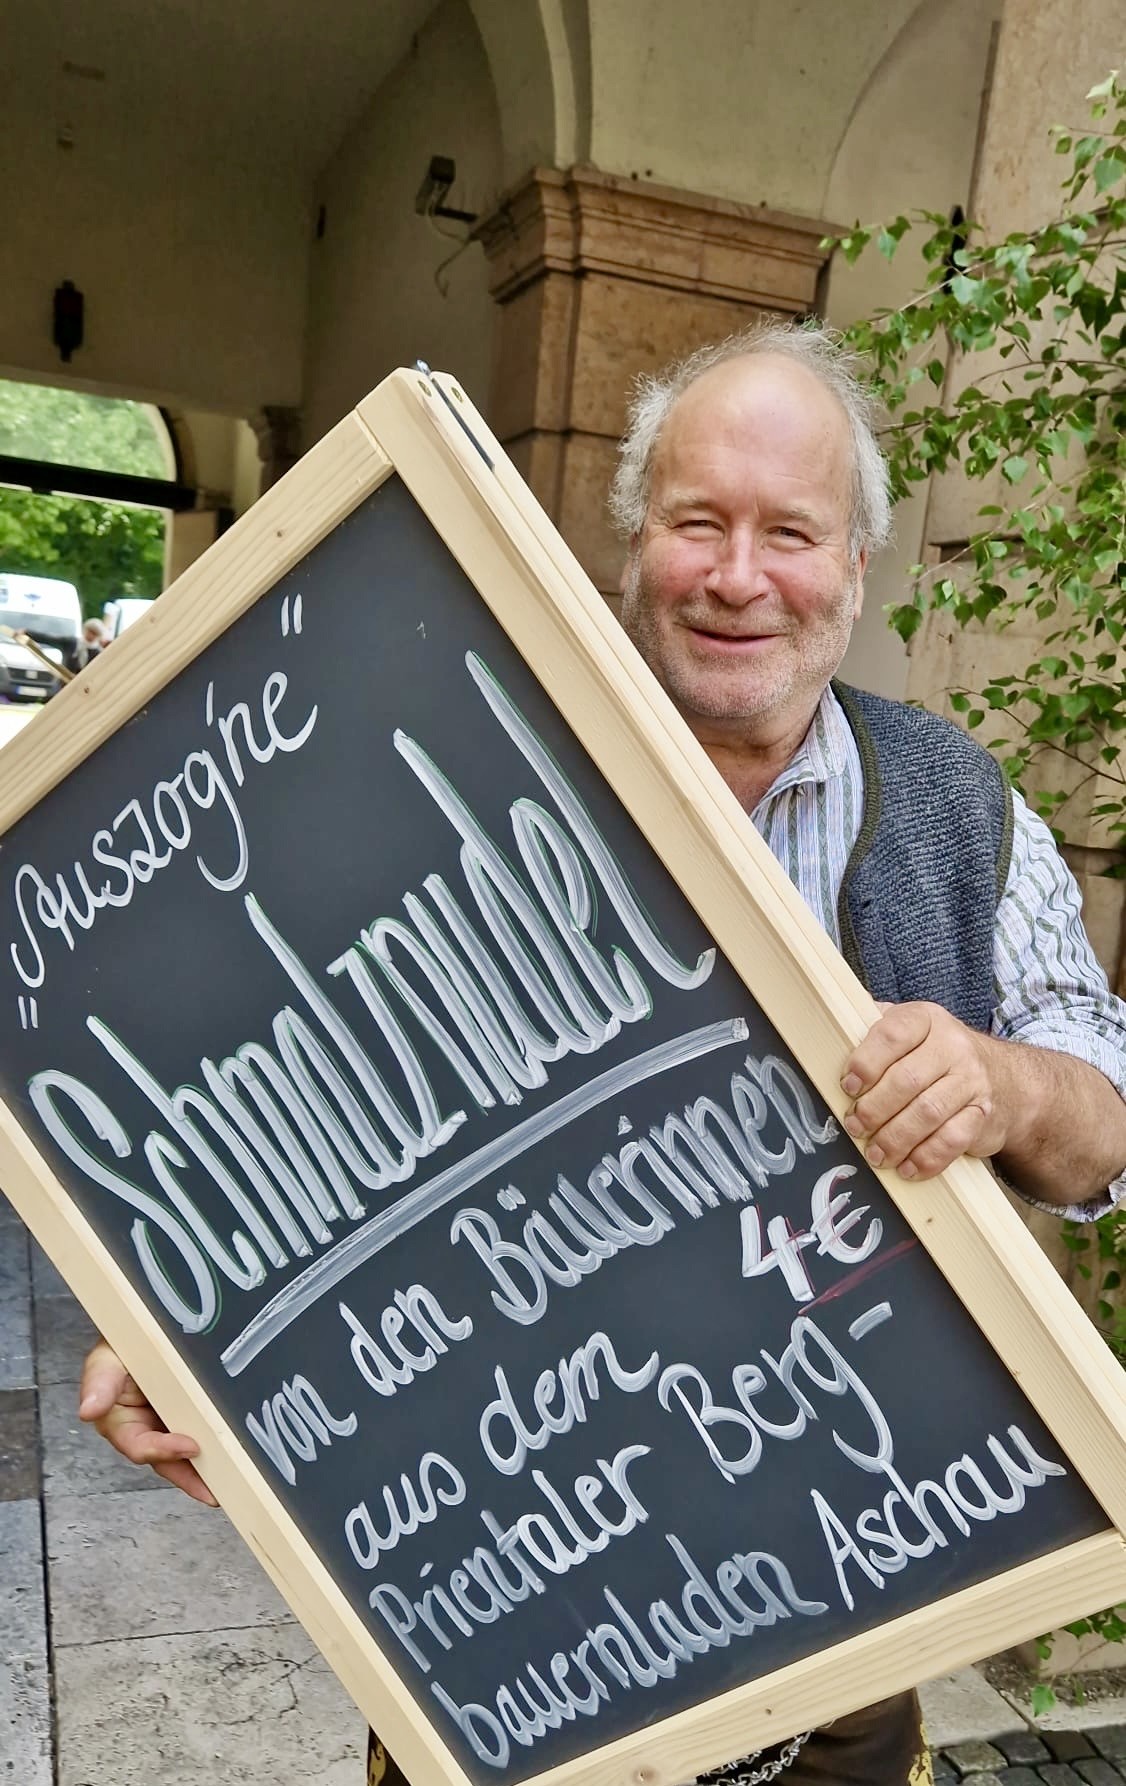 "Auszog'ne"
Schmalznudel
von den Bäuerinnen
4€
aus dem
Prientaler Berg-
bauernladen Aschau